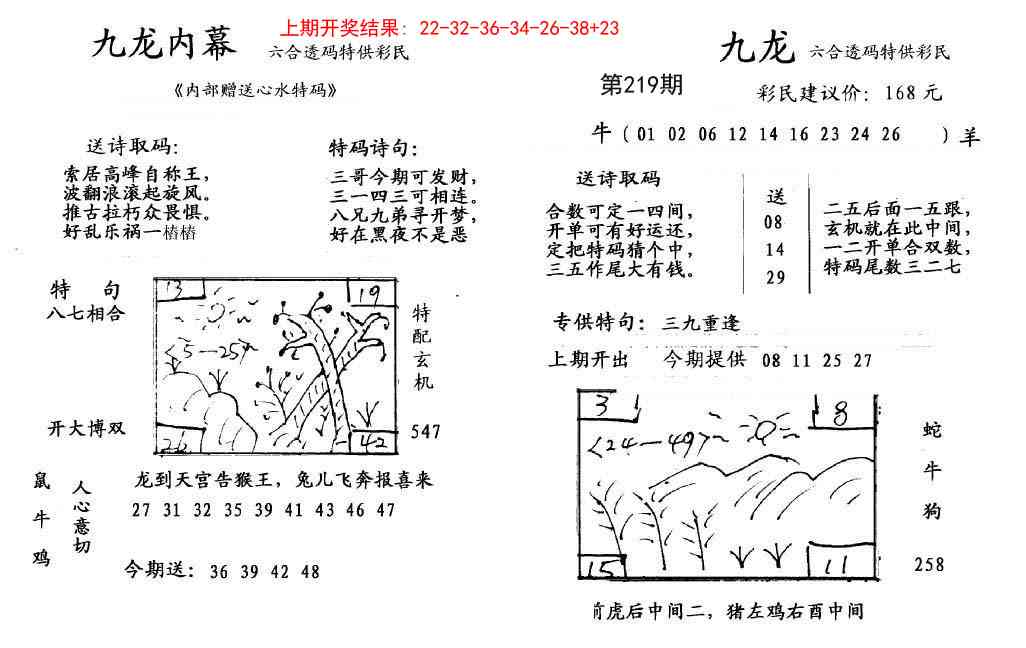 上期开奖结果: 22-32-36-34-26-38+23
九龙内幕 六合透码特供彩民
《内部赠送心水特码》
送诗取码:
索居高峰自称王,
波翻浪滚起旋风。
推古拉朽众畏惧。
好乱乐祸一樁樁
特码诗句:
三哥今期可发财,
三一四三可相连。
八兄九弟寻开梦,
好在黑夜不是恶
特 句
八七相合
开大博双
13
19
<5—25>
26
42
特配玄机
547
鼠
牛
鸡
人心意切
龙到天宫告猴王, 兔儿飞奔报喜来
27 31 32 35 39 41 43 46 47
今期送: 36 39 42 48
九龙 六合透码特供彩民
第219期
彩民建议价: 168 元
牛 (01 02 06 12 14 16 23 24 26 ) 羊
送诗取码
合数可定一四间,
开单可有好运还,
定把特码猜个中,
三五作尾大有钱。
送
08
14
29
二五后面一五跟,
玄机就在此中间,
一二开单合双数,
特码尾数三二七
专供特句: 三九重逢
上期开出 今期提供 08 11 25 27
3
8
<24—49>
15
11
蛇
牛
狗
258
前虎后中间二, 猪左鸡右酉中间